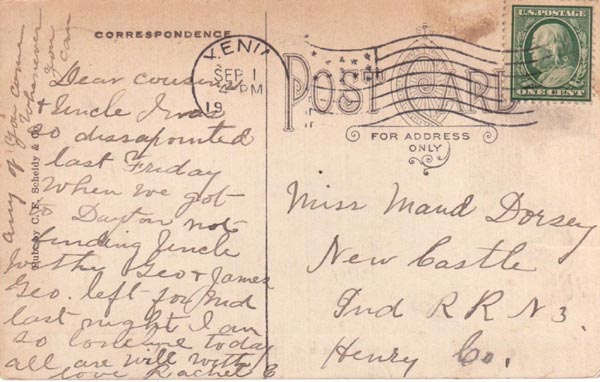 CORRESPONDENCE
XENIA
SEP 1
4 PM
19
U.S. POSTAGE
ONE CENT
POST CARD
FOR ADDRESS
ONLY
Dear cousins
& Uncle I was
so disapointed
last Friday
when we got
to Dayton not
finding Uncle
Worthy Geo & James
Geo. left for Ind
last night I am
so lonesome today
all are well with
love Rachel C
any of you come
whenever
you can
Pub. by C. E. Scheidy & Co.
Miss Maud Dorsey
New Castle
Ind R R N 3.
Henry Co.